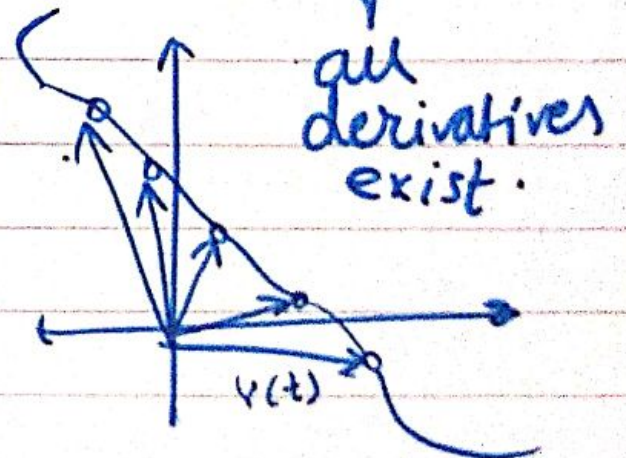 all
derivatives
exist.
γ(t)